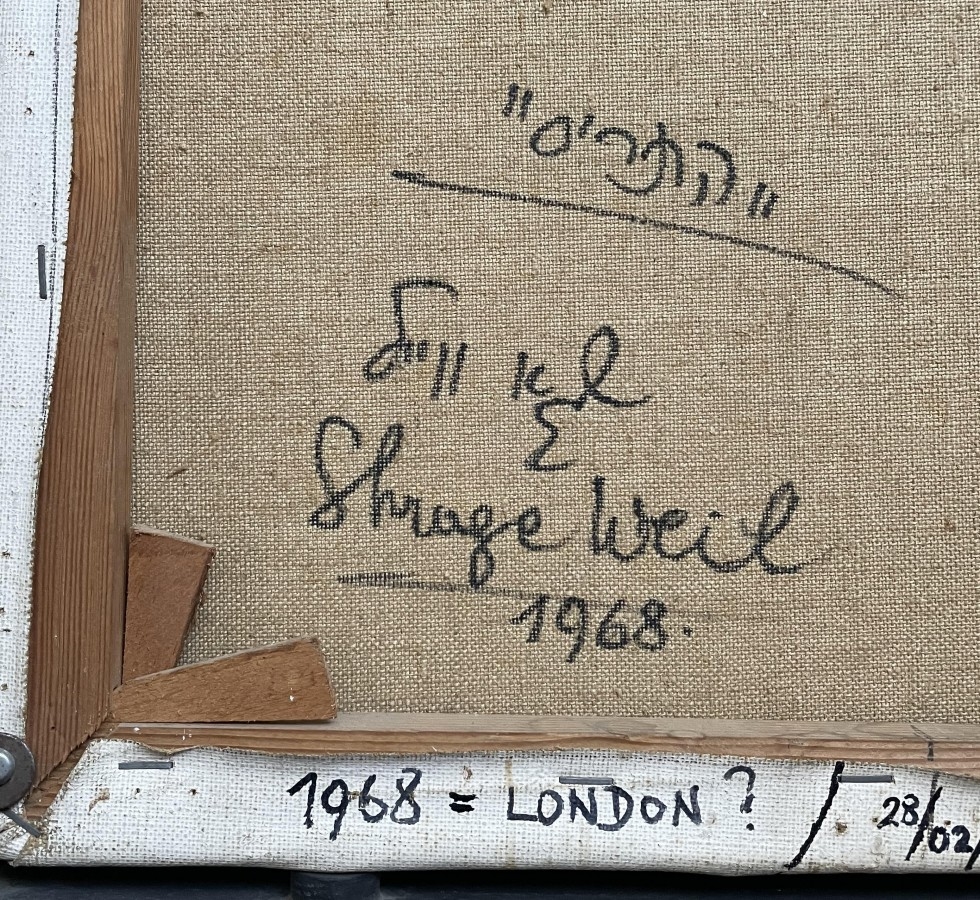 שרגא ווייל
Shrage Weil
1968.
1968 = LONDON ? / 28/02/